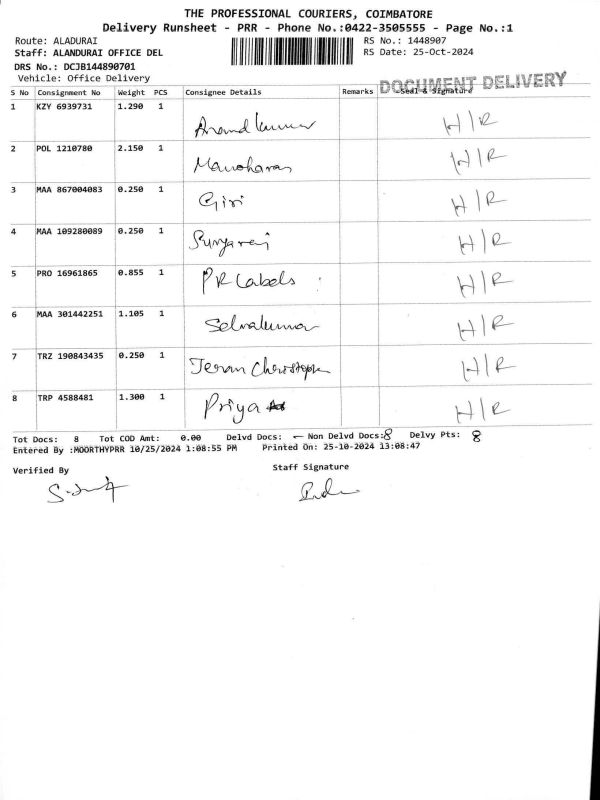 THE PROFESSIONAL COURIERS, COIMBATORE
Delivery Runsheet - PRR - Phone No.:0422-3505555 - Page No.:1
Route: ALADURAI RS No.: 1448907
Staff: ALANDURAI OFFICE DEL RS Date: 25-Oct-2024
DRS No.: DCJB144890701
Vehicle: Office Delivery DOCUMENT DELIVERY
S No Consignment No Weight PCS Consignee Details Remarks Seal & Signature
1 KZY 6939731 1.290 1 Anand kumar H/R
2 POL 1210780 2.150 1 Manoharan H/R
3 MAA 867004083 0.250 1 Giri H/R
4 MAA 109280089 0.250 1 Suryaraj H/R
5 PRO 16961865 0.855 1 PR Labels H/R
6 MAA 301442251 1.105 1 Selvakumar H/R
7 TRZ 190843435 0.250 1 H/R
8 TRP 4588481 1.300 1 Priya H/R
Tot Docs: 8 Tot COD Amt: 0.00 Delvd Docs: - Non Delvd Docs: 8 Delvy Pts: 8
Entered By :MOORTHYPRR 10/25/2024 1:08:55 PM Printed On: 25-10-2024 13:08:47
Verified By Staff Signature